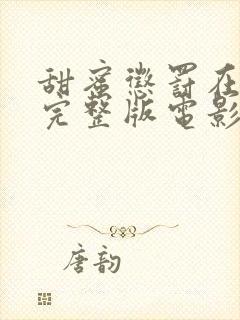 甜蜜懲罰在
完整版電影
唐韵